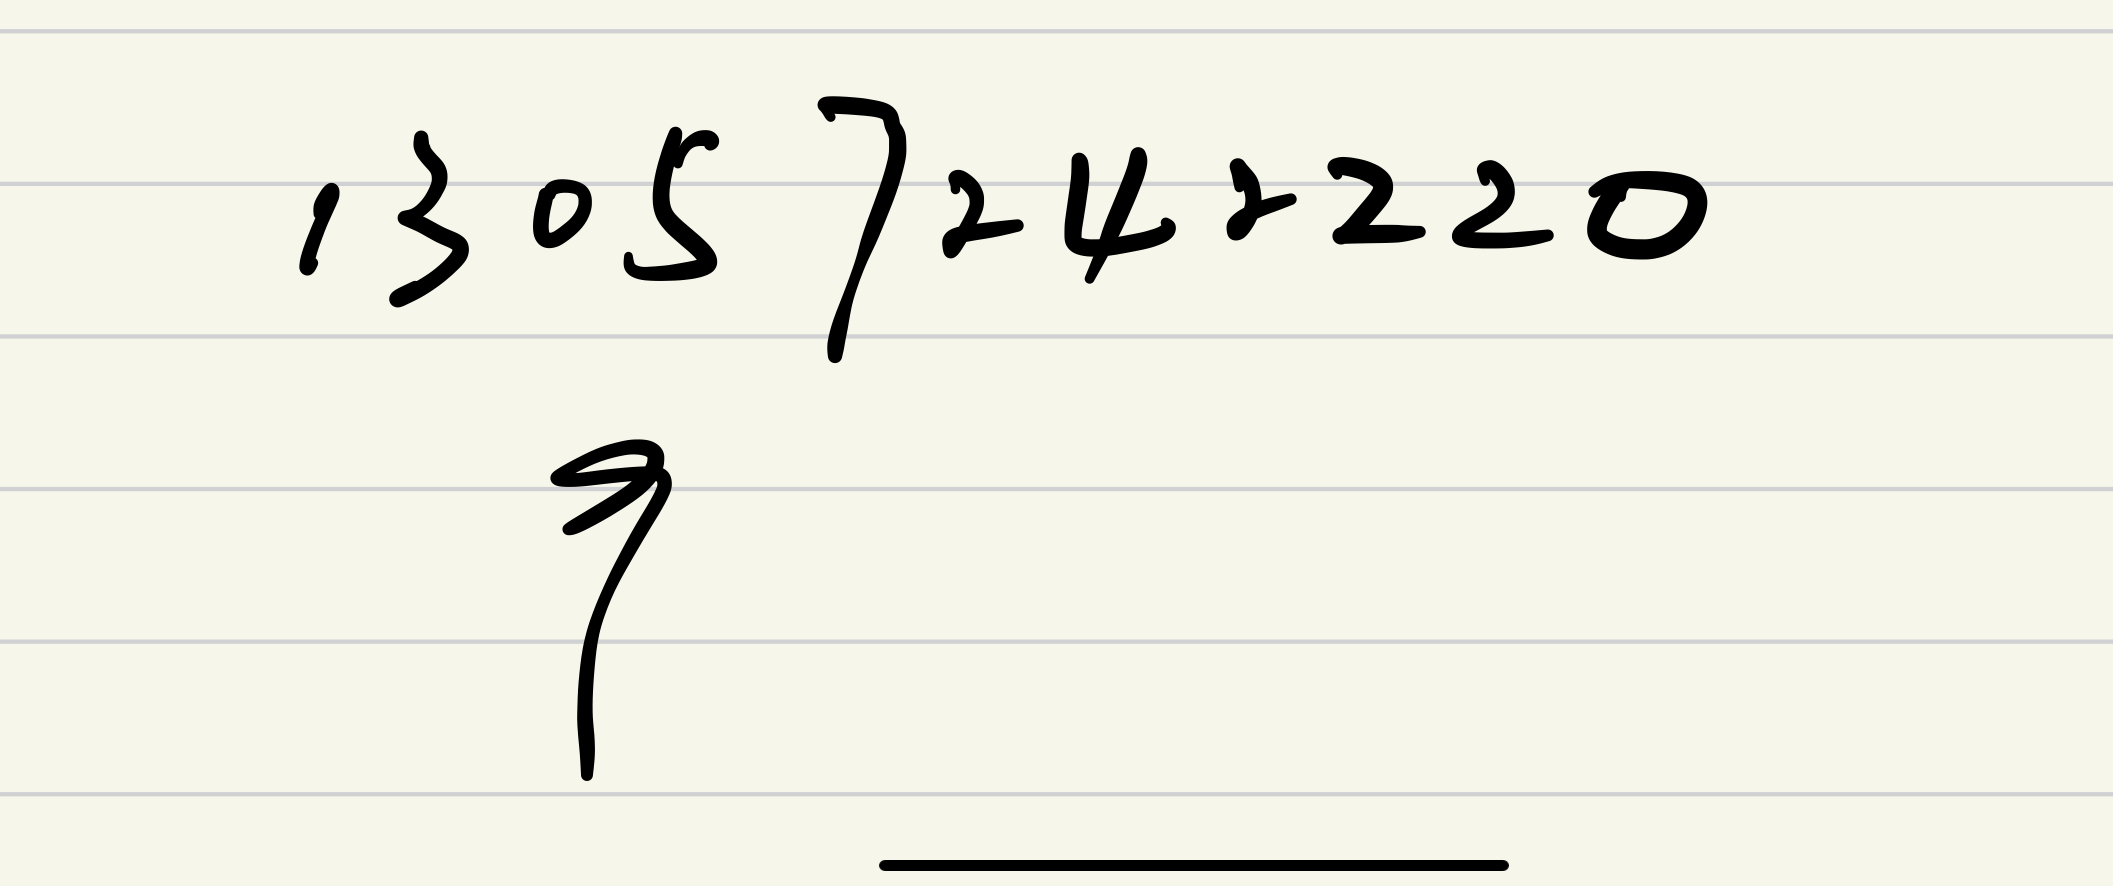 13057242220
9